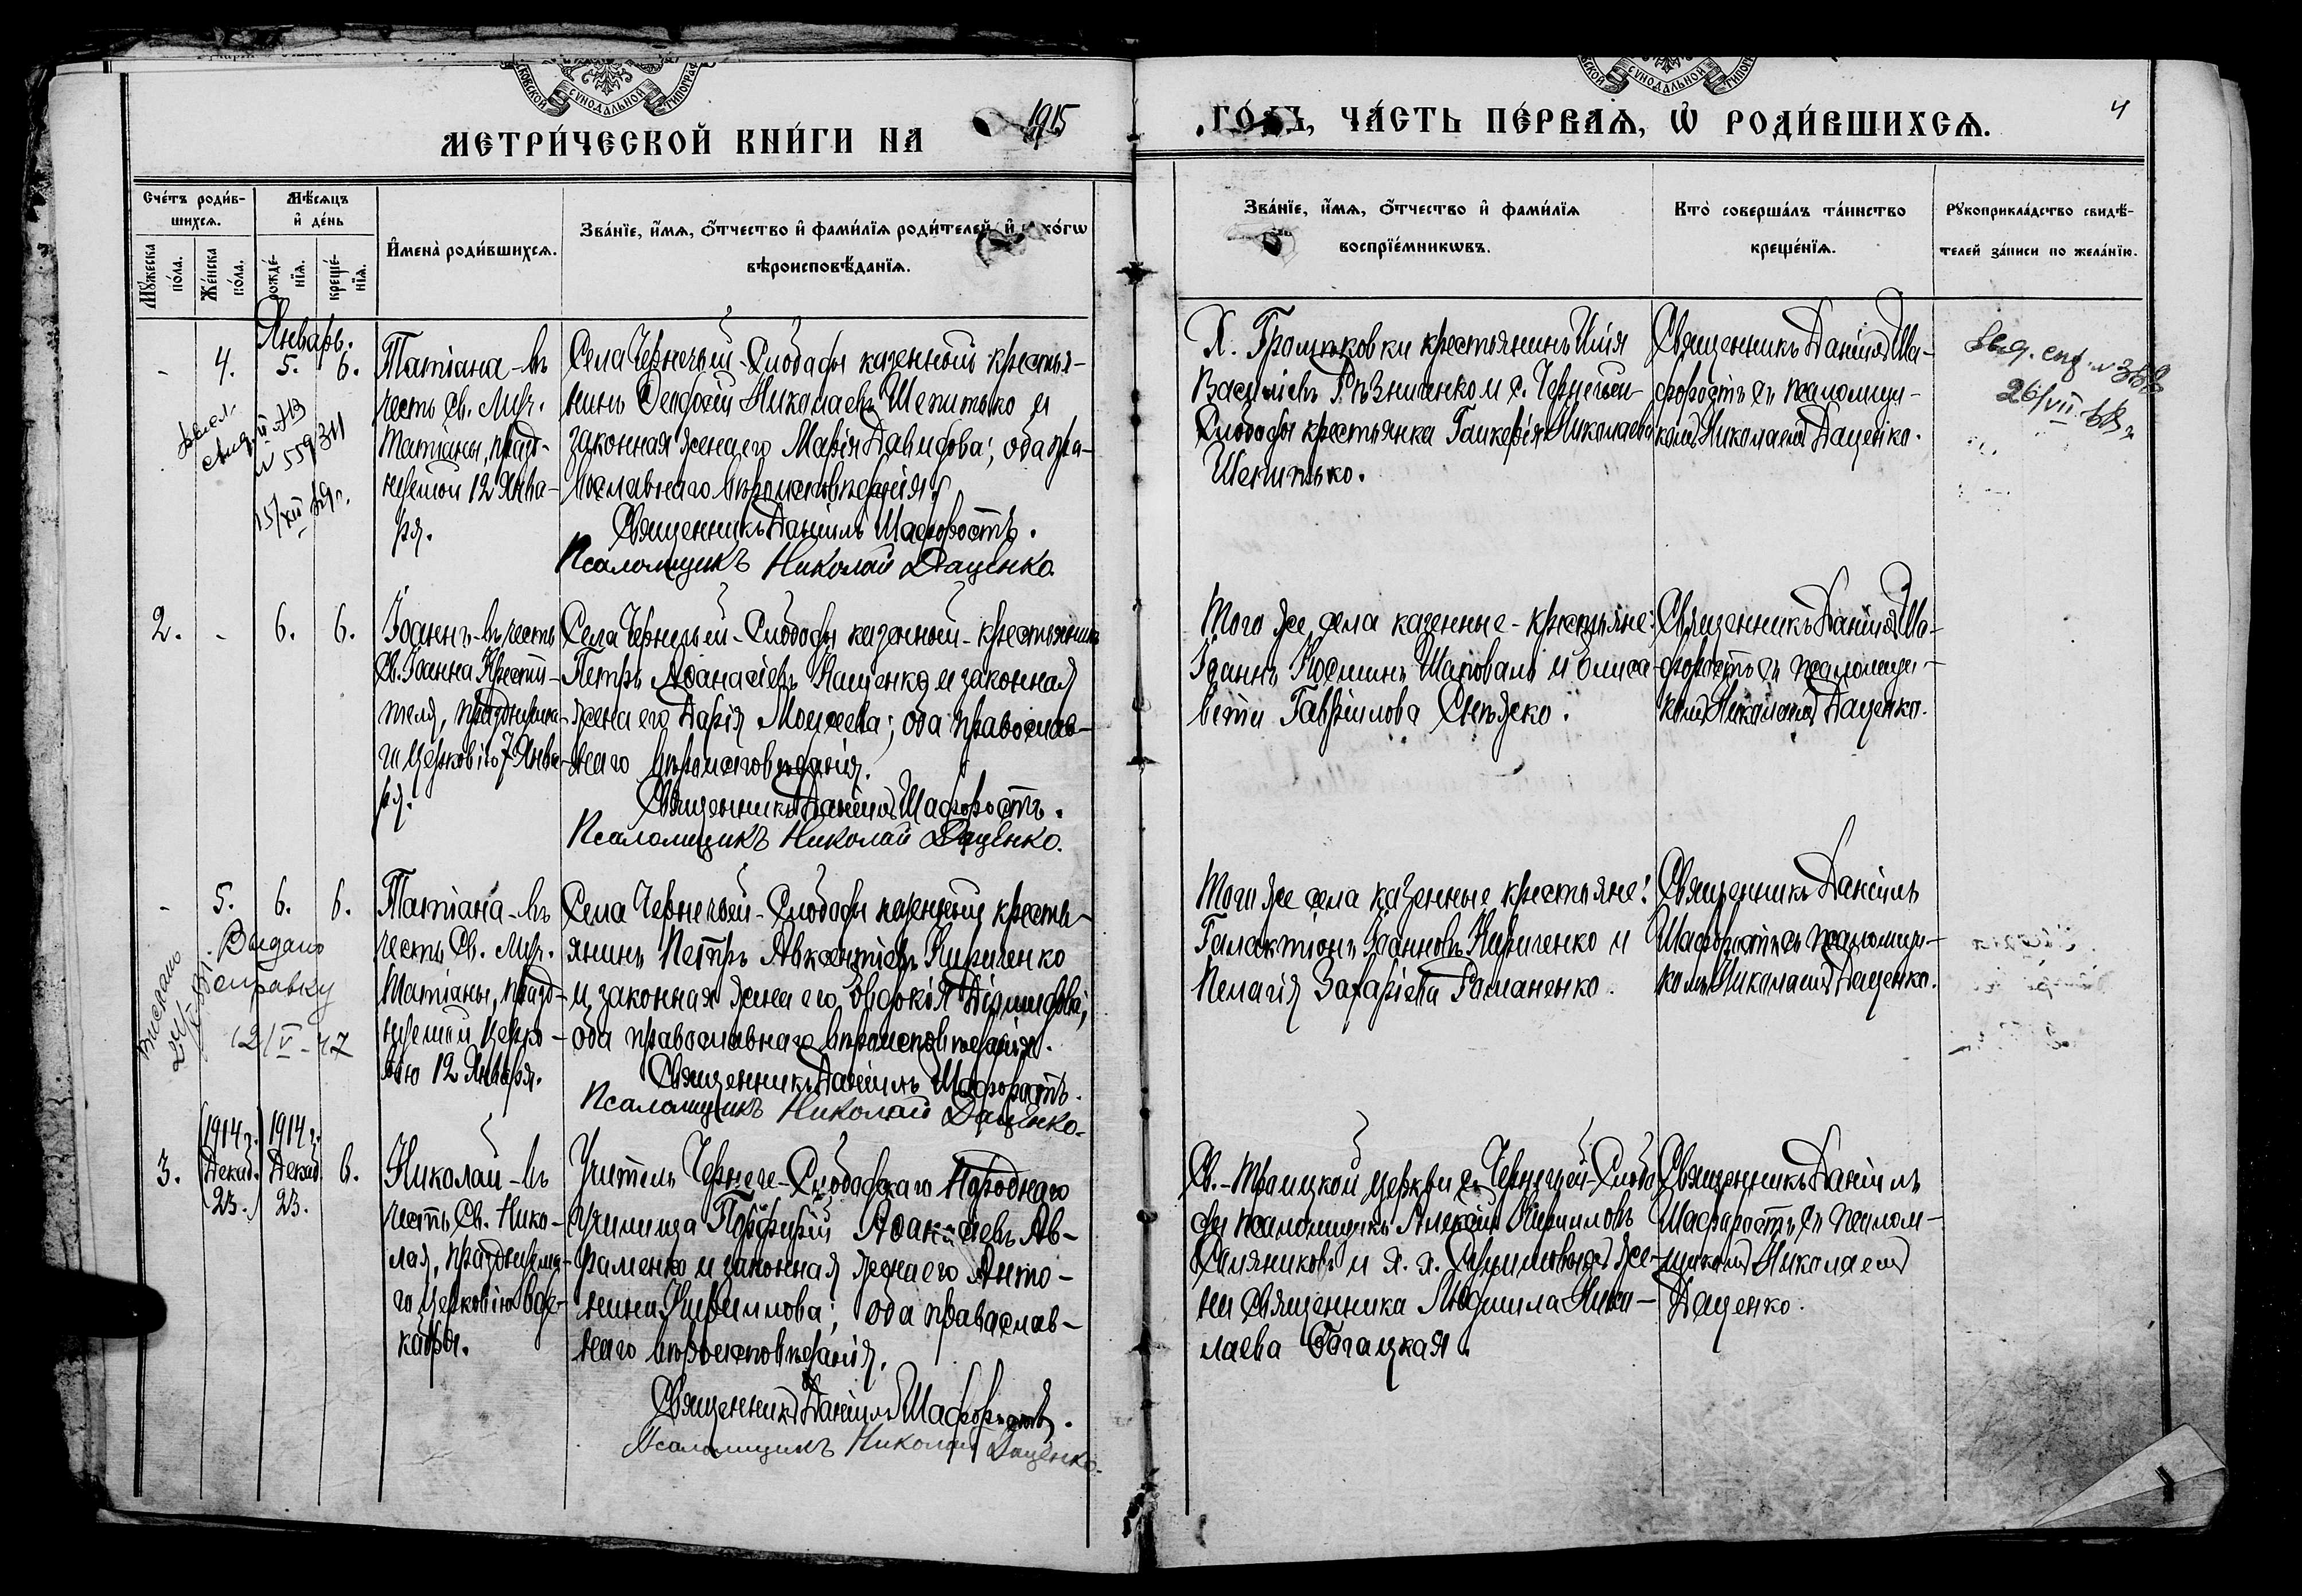 МЕТРИ́ЧЕСКОЙ КНИ́ГИ НА 1915
ГО́ДЪ, ЧА́СТЬ ПЕ́РВАѦ, Ѡ҆ РОДИ́ВШИХСѦ.
4
Счéтъ роди́в-
шихсѧ.
Мꙋ́жеска
по́ла.
Же́нска
по́ла.
Мѣ́сѧцъ
и҆ де́нь
рожде́-
нїѧ.
креще́-
нїѧ.
И҆мена̀ роди́вшихсѧ.
Зва́нїе, и҆́мѧ, ѻ҆́тчество и҆ фами́лїѧ роди́телей, и҆ ко́гѡ
вѣроисповѣ́данїѧ.
Зва́нїе, и҆́мѧ, ѻ҆́тчество и҆ фами́лїѧ
воспрїе́мникѡвъ.
Кто̀ соверша́лъ та́инство
креще́нїѧ.
Рꙋкоприкла́дство свидѣ́-
телей за́писи по жела́нїю.
Январь.
- 4. 5. 6.
Татіана - въ
честь Св. Муч.
Татіаны, празд-
нуемой 12 Янва-
ря.
Села Чернечьей-Слободы казенный крестья-
нинъ Николаевъ Шепитько и
законная жена его Марія Давидова; оба пра-
вославнаго вѣроисповѣданія.
Священникъ Даніилъ Шафоростъ.
Псаломщикъ Николай Даценко.
Х. крестьянинъ Илія
Васильевъ Рѣзниченко и с. Чернечьей-
Слободы крестьянка Гликерія Николаева
Шепитько.
Священникъ Даніилъ Ша-
форостъ съ псаломщи-
комъ Николаемъ Даценко.
№ 559311
15/XII
26/VII
2. - 6. 6.
Іоаннъ - въ честь
Св. Іоанна Крести-
теля, празднуема-
го Церковію 7 Янва-
ря.
Села Чернечьей-Слободы казенный-крестьянинъ
Петръ Аѳанасіевъ и законная
жена его Дарія Моисеева; оба православ-
наго вѣроисповѣданія.
Священникъ Даніилъ Шафоростъ.
Псаломщикъ Николай Даценко.
Того же села казенные-крестьяне:
Іоаннъ Косминъ Шаповалъ и Елиса-
вета Гавріилова
Священникъ Даніилъ Ша-
форостъ съ псаломщи-
комъ Николаемъ Даценко.
- 5. 6. 6.
Татіана - въ
честь Св. Муч.
Татіаны, празд-
нуемой Церко-
вію 12 Января.
Села Чернечьей-Слободы казенный кресть-
янинъ Петръ Авксентіевъ Кириченко
и законная жена его Евдокія
оба православнаго вѣроисповѣданія.
Священникъ Даніилъ Шафоростъ.
Псаломщикъ Николай Даценко.
Того же села казенные крестьяне:
Галактіонъ Іоанновъ Кириченко и
Пелагія Захаріева Романенко.
Священникъ Даніилъ
Шафоростъ съ псаломщи-
комъ Николаемъ Даценко.
Выдано
справку
12/V-47
3. (1914 г. Декаб. 23.) 1914 г. Декаб. 23. 6.
Николай - въ
честь Св. Нико-
лая, празднуема-
го Церковію 6 де-
кабря.
Учитель Чернече-Слободскаго Народнаго
училища Порфирій Аѳанасіевъ Ав-
раменко и законная жена его Анто-
нина Кириллова; оба православ-
наго вѣроисповѣданія.
Священникъ Даніилъ Шафоростъ.
Псаломщикъ Николай Даценко.
Св.-Троицкой церкви с. Чернечьей-Слобо-
ды псаломщикъ Алексій Кирилловъ
и же-
на священника Людмила Нико-
лаева Богацкая.
Священникъ Даніилъ
Шафоростъ съ псалом-
щикомъ Николаемъ
Даценко.